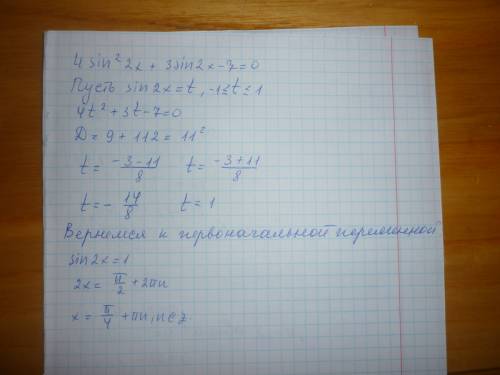 4 sin² 2x + 3 sin 2x - 7 = 0
Пусть sin 2x = t, -1 ≤ t ≤ 1
4t² + 3t - 7 = 0
D = 9 + 112 = 11²
t = (-3-11)/8    t = (-3+11)/8
t = - 14/8    t = 1
Вернемся к первоначальной переменной
sin 2x = 1
2x = π/2 + 2πn
x = π/4 + πn, n ∈ z.